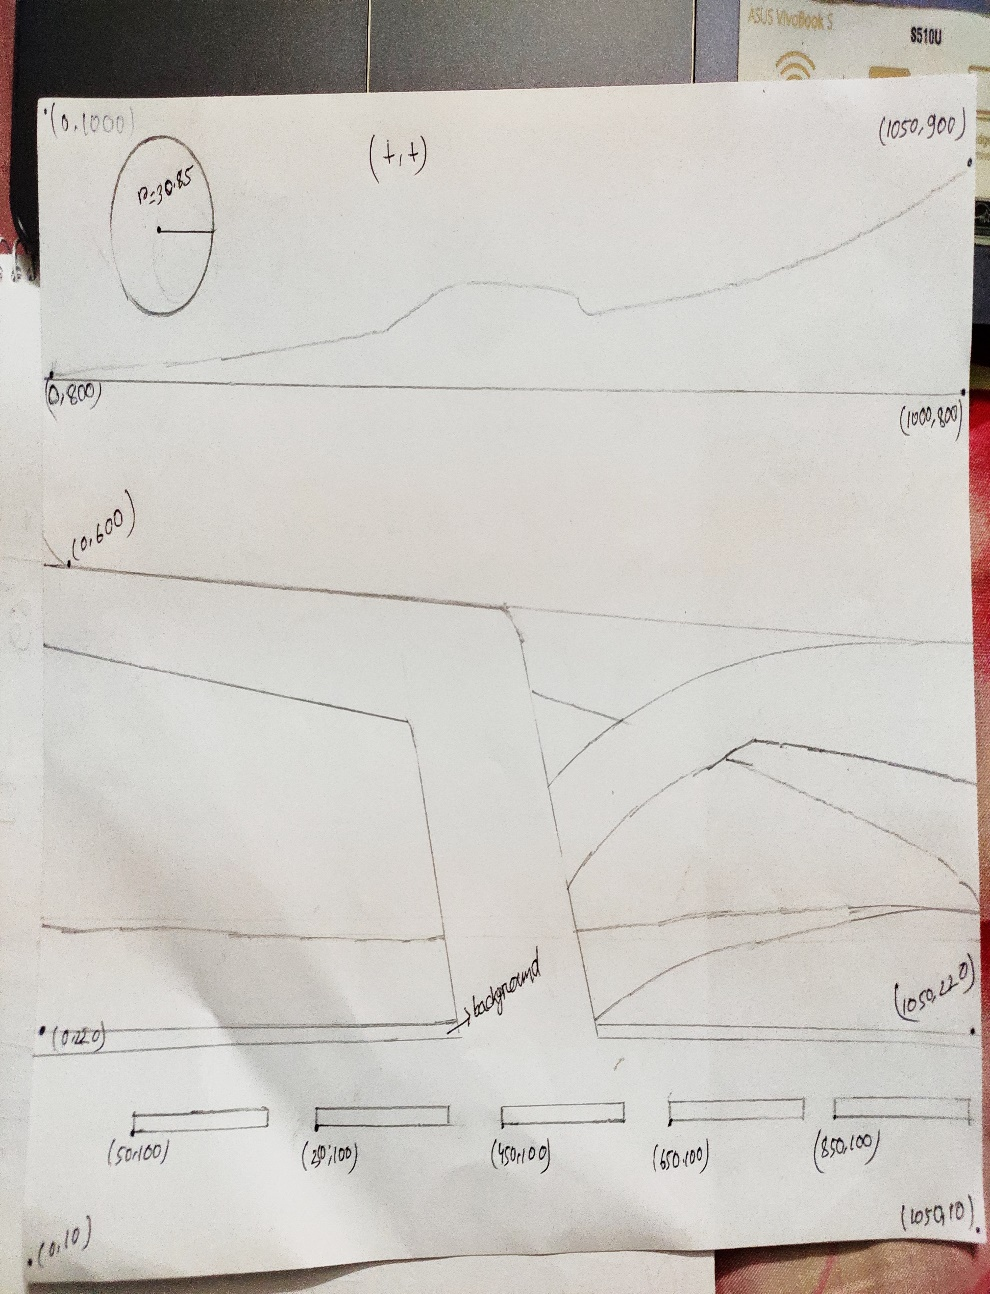 ASUS VivoBook S
S510U
(0,1000)
(+,+)
(1050,900)
r=30.85
(0,800)
(1000,800)
(0,600)
background
(1050,220)
(0,220)
(50,100)
(450,100)
(650,100)
(850,100)
(0,10)
(1050,10)